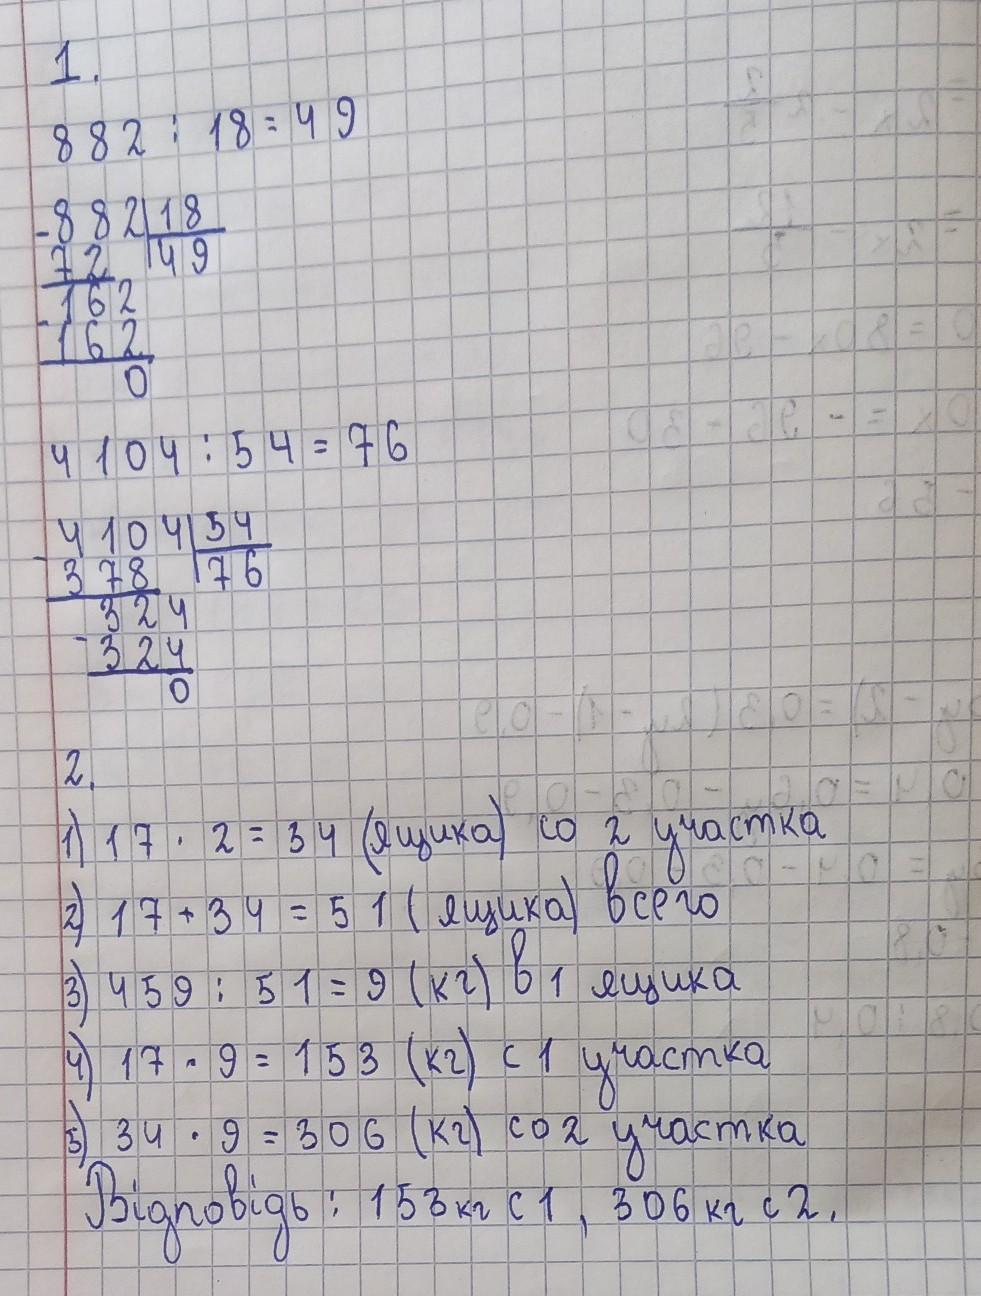 1.
882 : 18 = 49
-882|18
72 |49
-162
162
0
4104 : 54 = 76
-4104|54
378 |76
324
-324
0
2.
1) 17 · 2 = 34 (ящика) со 2 участка
2) 17 + 34 = 51 (ящика) всего
3) 459 : 51 = 9 (кг) в 1 ящика
4) 17 · 9 = 153 (кг) с 1 участка
5) 34 · 9 = 306 (кг) со 2 участка
Відповідь : 153 кг с 1 , 306 кг с 2.